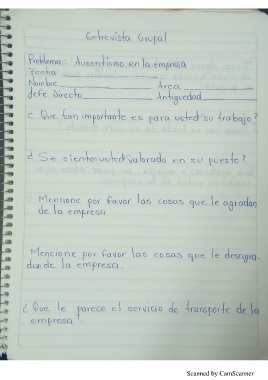 Entrevista Grupal
Problema: Ausentismo en la empresa
Fecha:
Nombre Area
Jefe Directo Antiguedad
¿ Que tan importante es para usted su trabajo?
¿ Se siente usted valorado en su puesto?
Mencione por favor las cosas que le agradan
de la empresa
Mencione por favor las cosas que le desagra-
dan de la empresa.
¿ Que le parece el servicio de transporte de la
empresa
Scanned by CamScanner